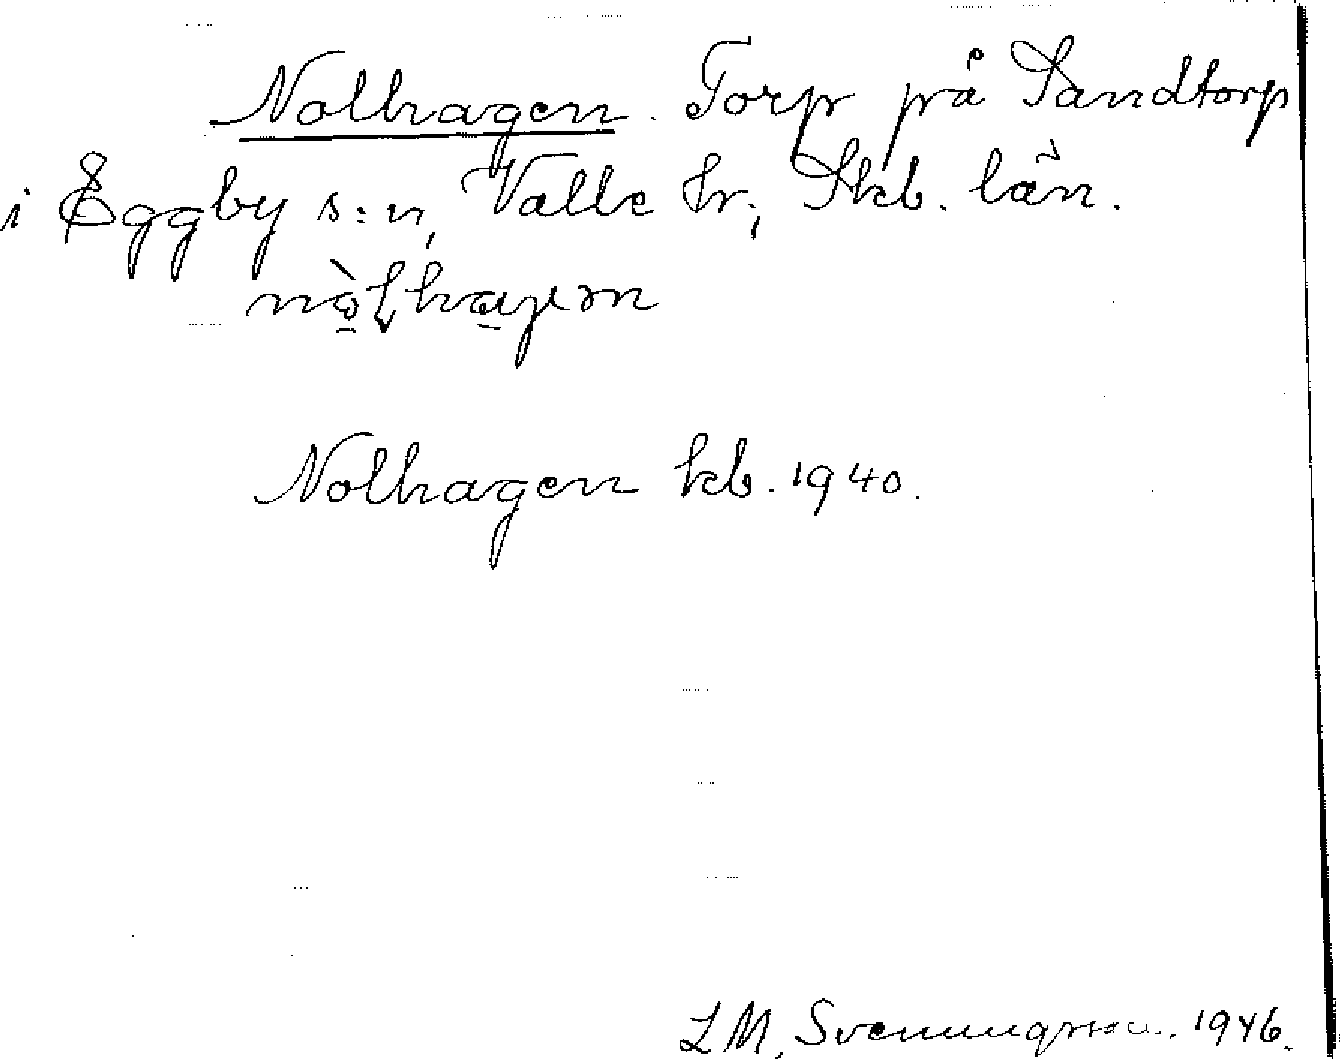 Nolhagen. Torp på Sandtorp
i Eggby s:n, Valle hr; Skb. län.
Nolhagen kb. 1940.
L M. Svenungsson. 1946.